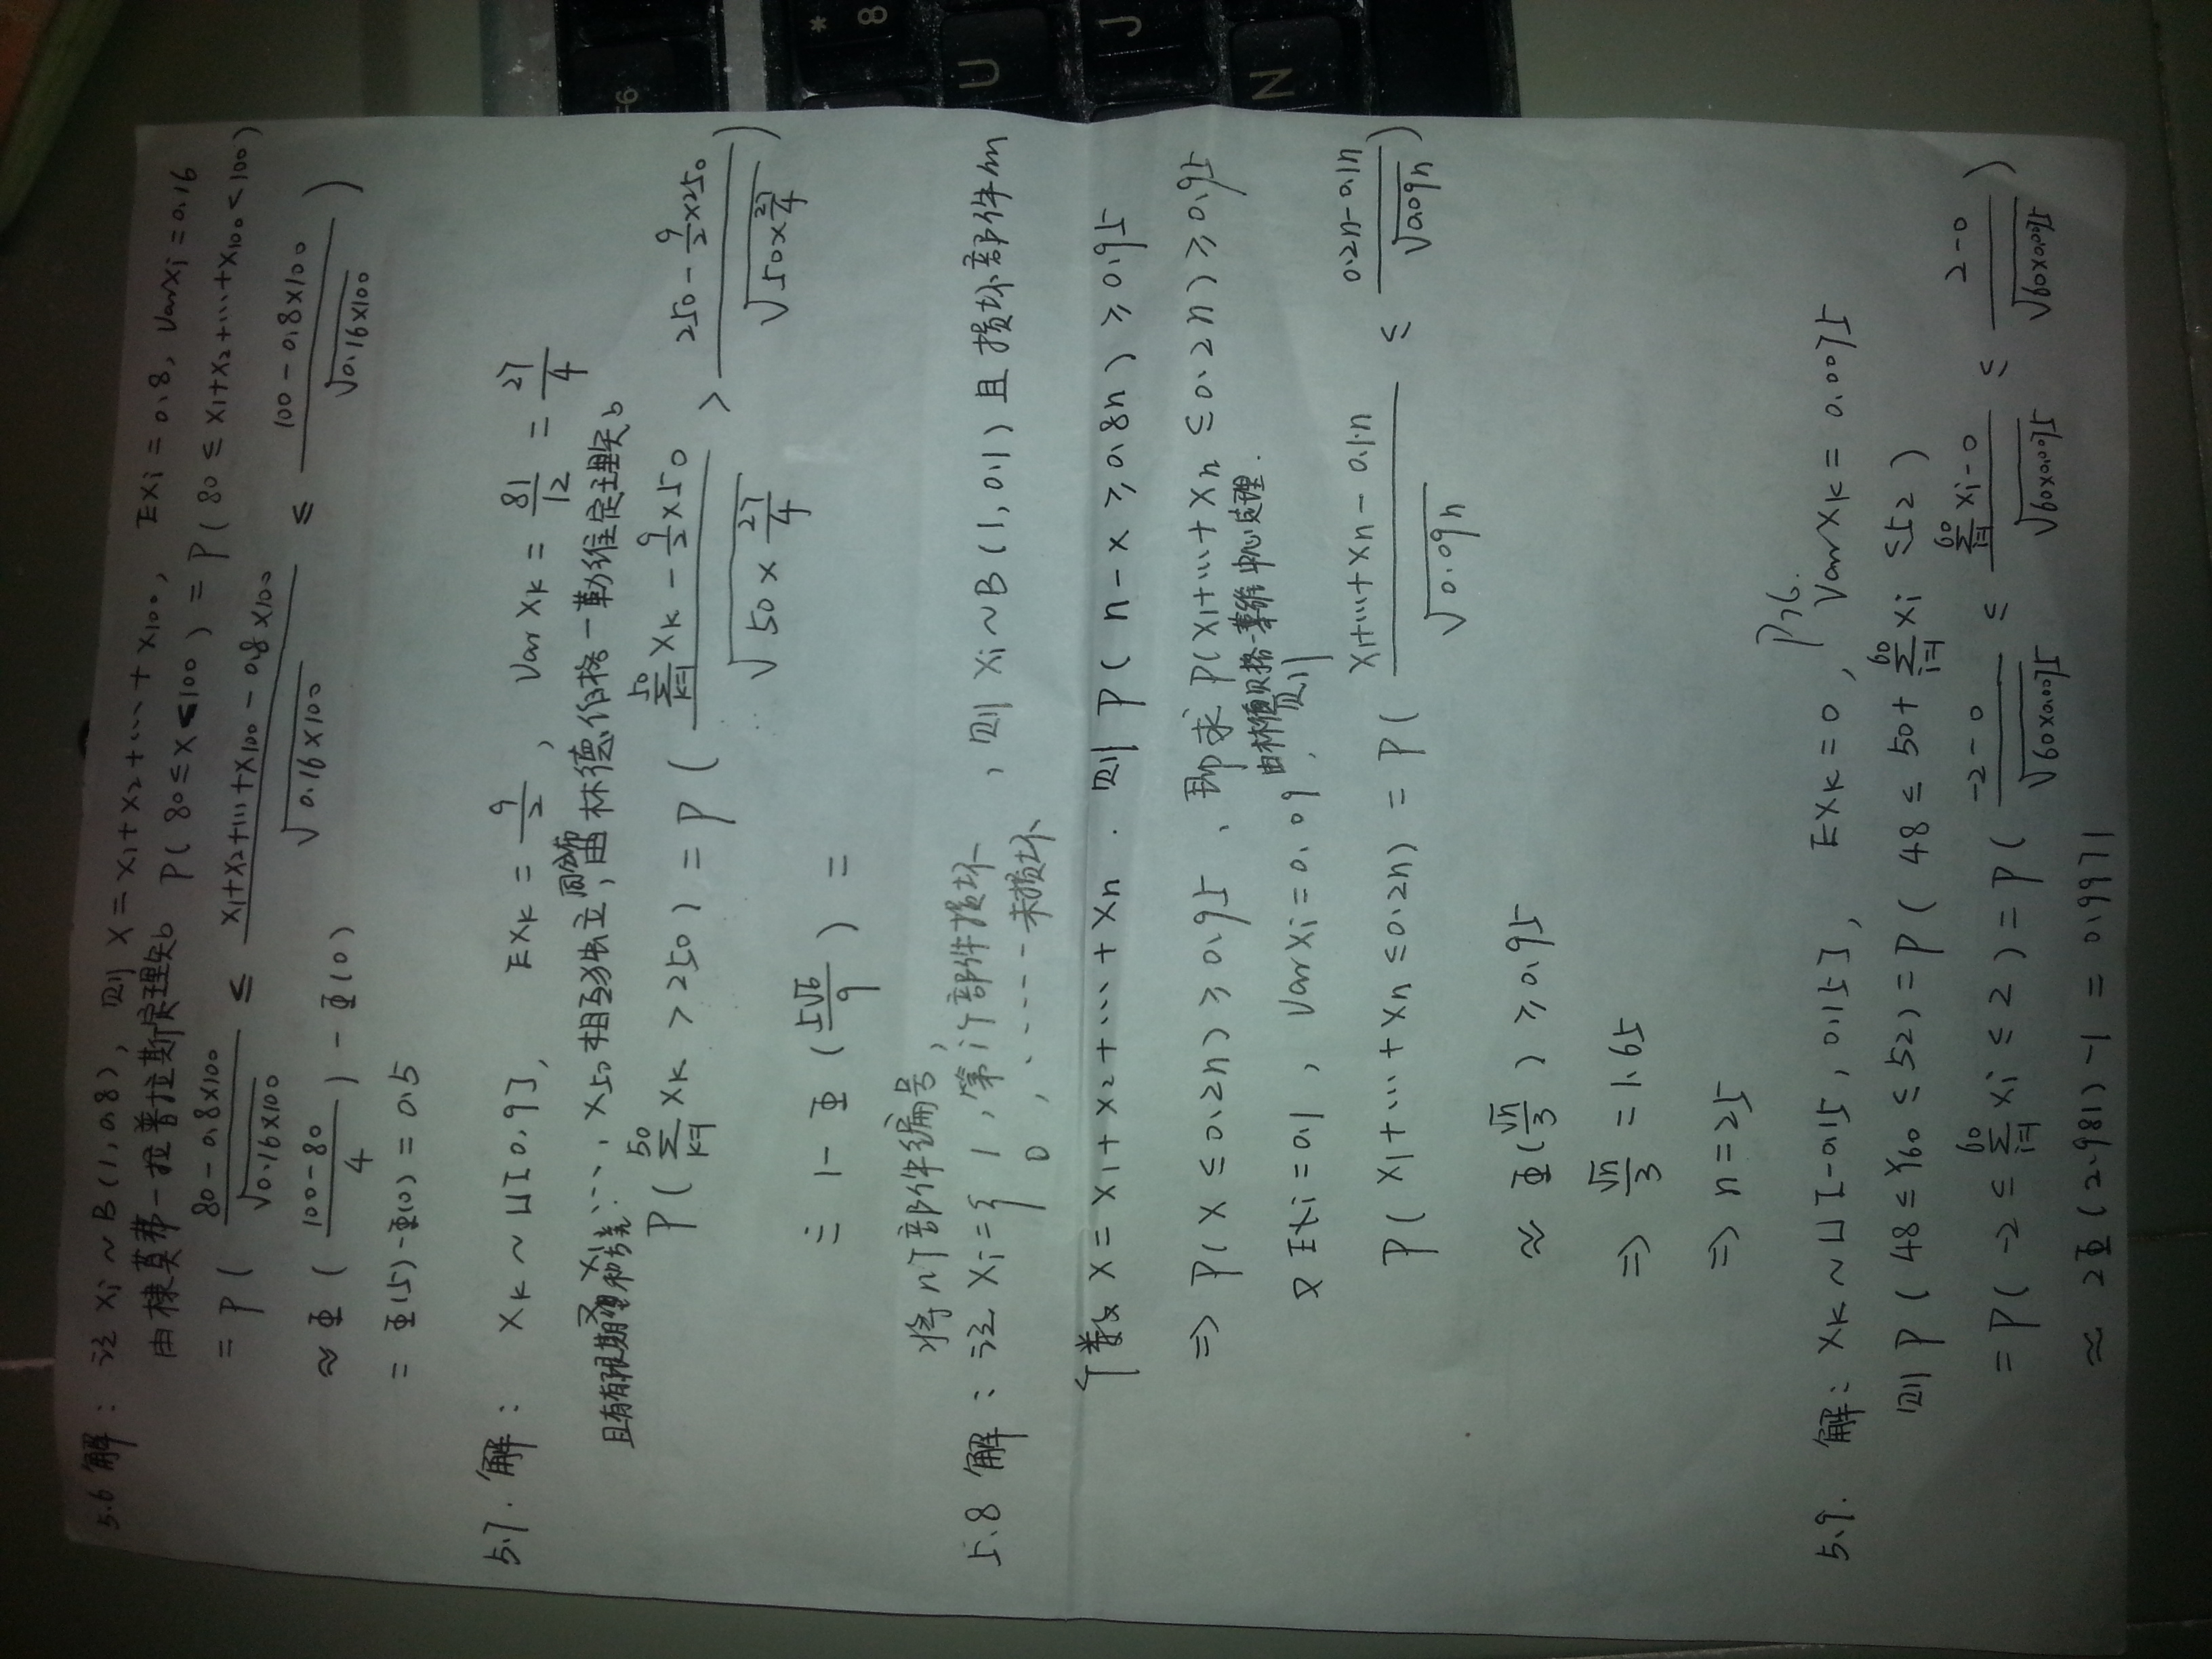 5.6 解: 记 Xi ~ B(1, 0.8), 则 X = X1 + X2 + ⋯ + X100, EXi = 0.8, VarXi = 0.16
由棣莫弗-拉普拉斯定理知 P( 80 ≤ X ≤ 100 ) = P( 80 ≤ X1+X2+⋯+X100 < 100 )
= P( (80-0.8×100)/√(0.16×100) ≤ (X1+X2+⋯+X100 - 0.8×100)/√(0.16×100) ≤ (100-0.8×100)/√(0.16×100) )
≈ Φ( (100-80)/4 ) - Φ(0)
= Φ(5) - Φ(0) = 0.5
5.7. 解: XK ~ U[0,9], EXK = 9/2, Var XK = 81/12 = 27/4
又 X1, ⋯, X50 相互独立, 同分布 由林德伯格-勒维定理知
且有有限期望和方差
P( ∑_{k=1}^{50} XK > 250 ) = P( (∑_{k=1}^{50} XK - 9/2×50)/√(50×27/4) > (250 - 9/2×250)/√(50×27/4) )
= 1 - Φ( 5√6/9 ) =
将n个部件编号,
5.8 解: 记 Xi = { 1, 第i个部件损坏 , 则 Xi ~ B(1, 0.1) 且损坏部件的
0, ⋯⋯ 未损坏
个数 X = X1 + X2 + ⋯ + Xn. 则 P( n-X ≥ 0.8n ) ≥ 0.95
⇒ P( X ≤ 0.2n ) ≥ 0.95, 即求 P(X1+⋯+Xn ≤ 0.2n) ≥ 0.95
由林德贝格-莱维中心定理.
又 EXi = 0.1, VarXi = 0.09, 则
P( X1+⋯+Xn ≤ 0.2n ) = P( (X1+⋯+Xn - 0.1·n)/√(0.09n) ≤ (0.2n-0.1n)/√(0.09n) )
≈ Φ( √n/3 ) ≥ 0.95
⇒ √n/3 = 1.65
⇒ n = 25
P76.
5.9. 解: XK ~ U[-0.15, 0.15], EXK = 0, VarXK = 0.0075
则 P( 48 ≤ Y60 ≤ 52 ) = P( 48 ≤ 50 + ∑_{i=1}^{60} Xi ≤ 52 )
= P( -2 ≤ ∑_{i=1}^{60} Xi ≤ 2 ) = P( (-2-0)/√(60×0.0075) ≤ (∑_{i=1}^{60} Xi - 0)/√(60×0.0075) ≤ (2-0)/√(60×0.0075) )
≈ 2Φ(2.981) - 1 = 0.9971
F6
*
8
U
J
N